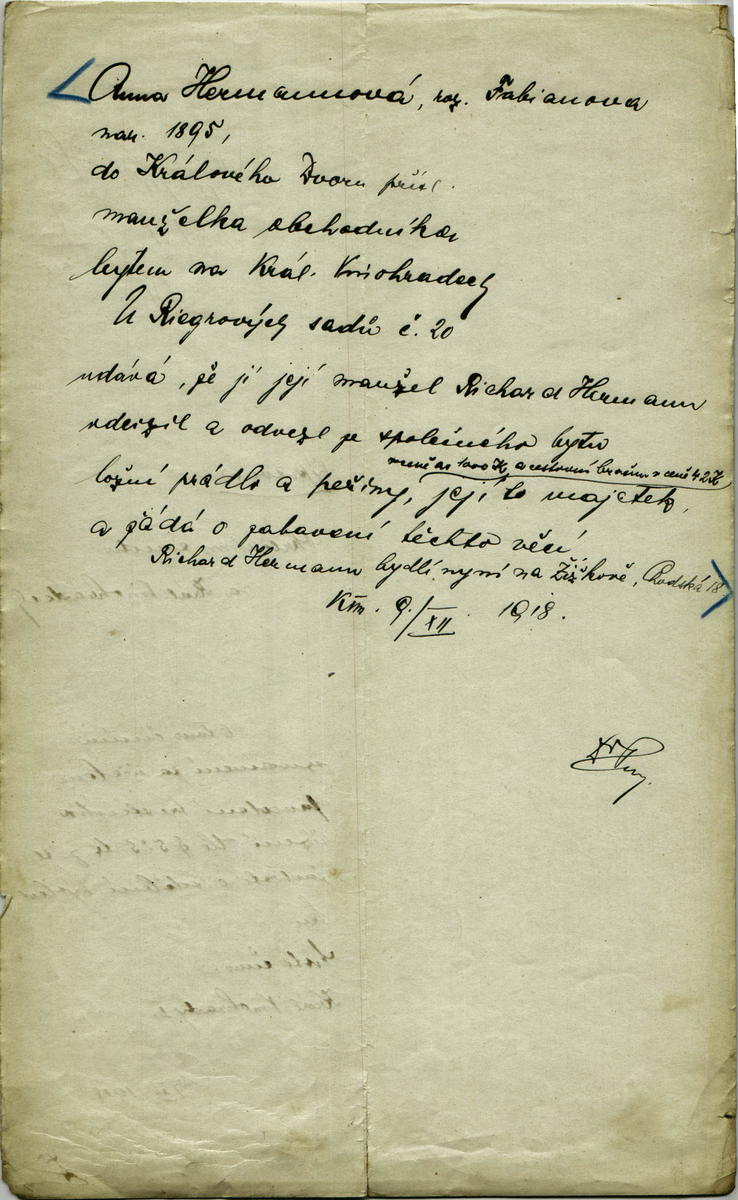 Anna Hermannová, roz. Fabianova
nar. 1895,
do Králového Dvora přísl.
manželka obchodníka
bytem na Král. Vinohradech
U Riegrových sadů č. 20
udává, že jí její manžel Richard Hermann
odcizil a odvezl ze společného bytu
v ceně as 1000 K a cestovní v ceně 42 K
ložní prádlo a peřiny, její to majetek,
a žádá o zabavení těchto věcí.
Richard Hermann bydlí nyní na Žižkově, Chodská 18
9./XII. 1918.